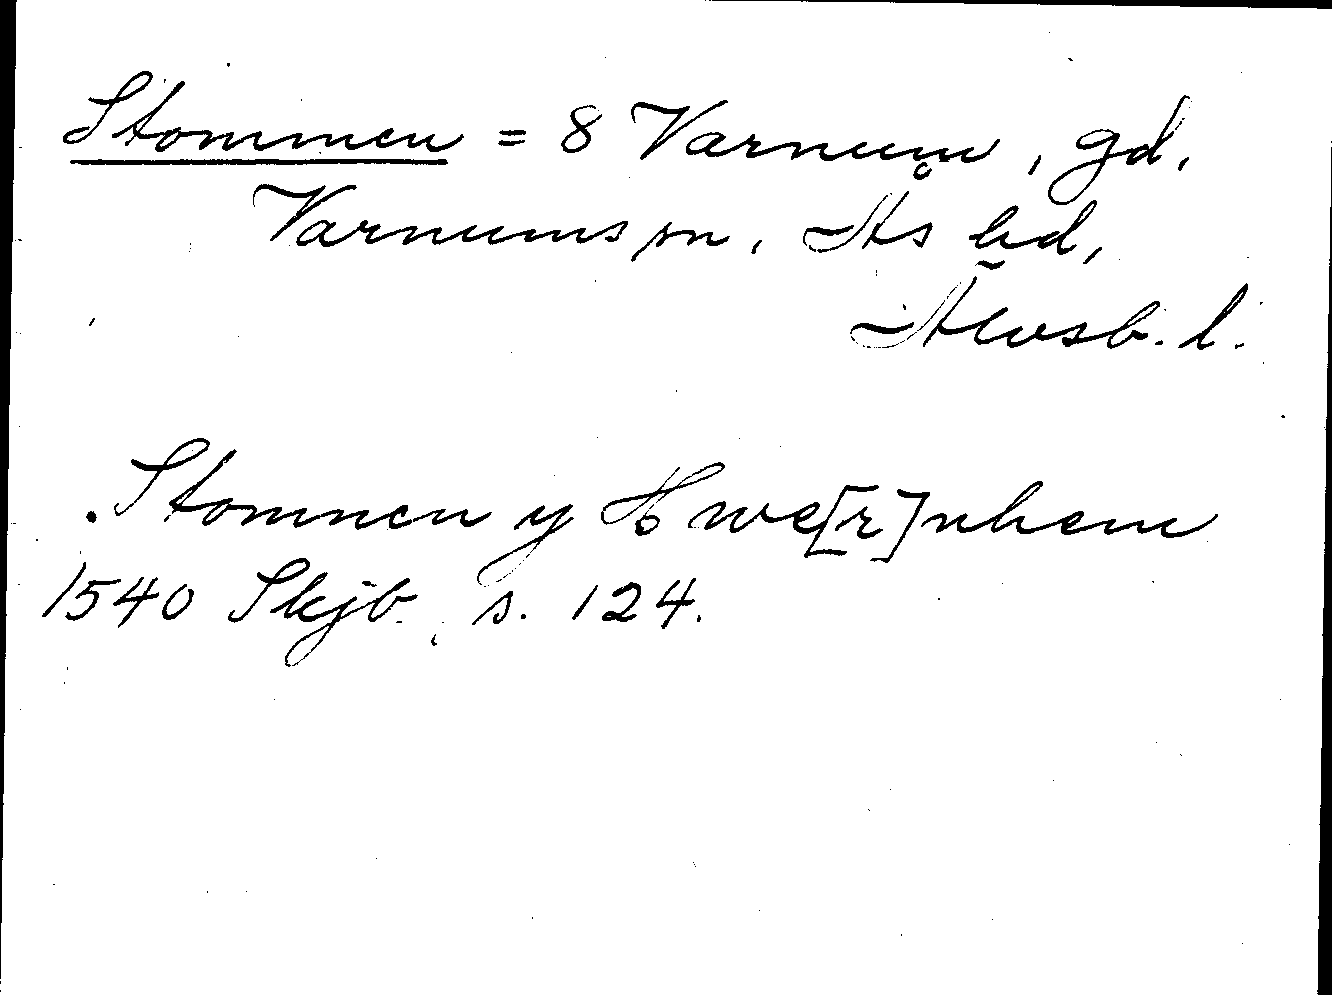 Stommen = 8 Varnum, gd,
Varnums sn, Ås hd,
Älvsb. l.
Stomnen y Hwe[r]nhem
1540 Skjb. s. 124.